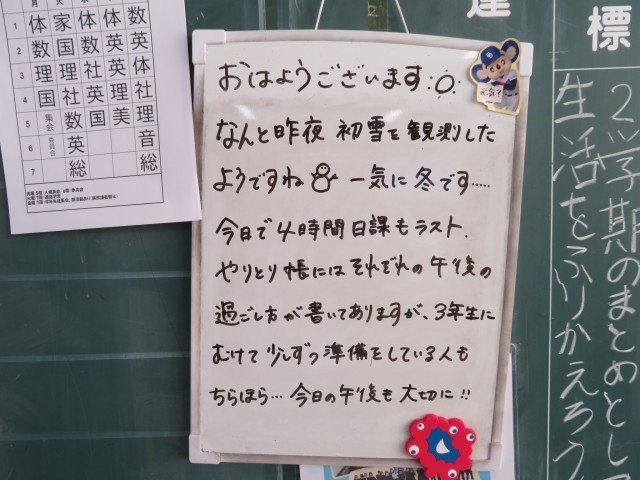 おはようございます
元気?
なんと昨夜 初雪を観測した
ようですね 一気に冬です.....
今日で4時間日課もラスト.
やりとり帳にはそれぞれの午後の
過ごし方が書いてありますが、3年生に
むけて少しずつ準備をしている人も
ちらほら… 今日の午後も大切に!!
月 火 水 木 金
1 体 家 体 体 数
2 数 国 数 英 英
3 理 理 社 数 体
4 国 社 英 理 社
5 集会 数 国 美 理
6 委員会 英 音
7 総 総
標
2学期のまとめとして
生活をふりかえろう